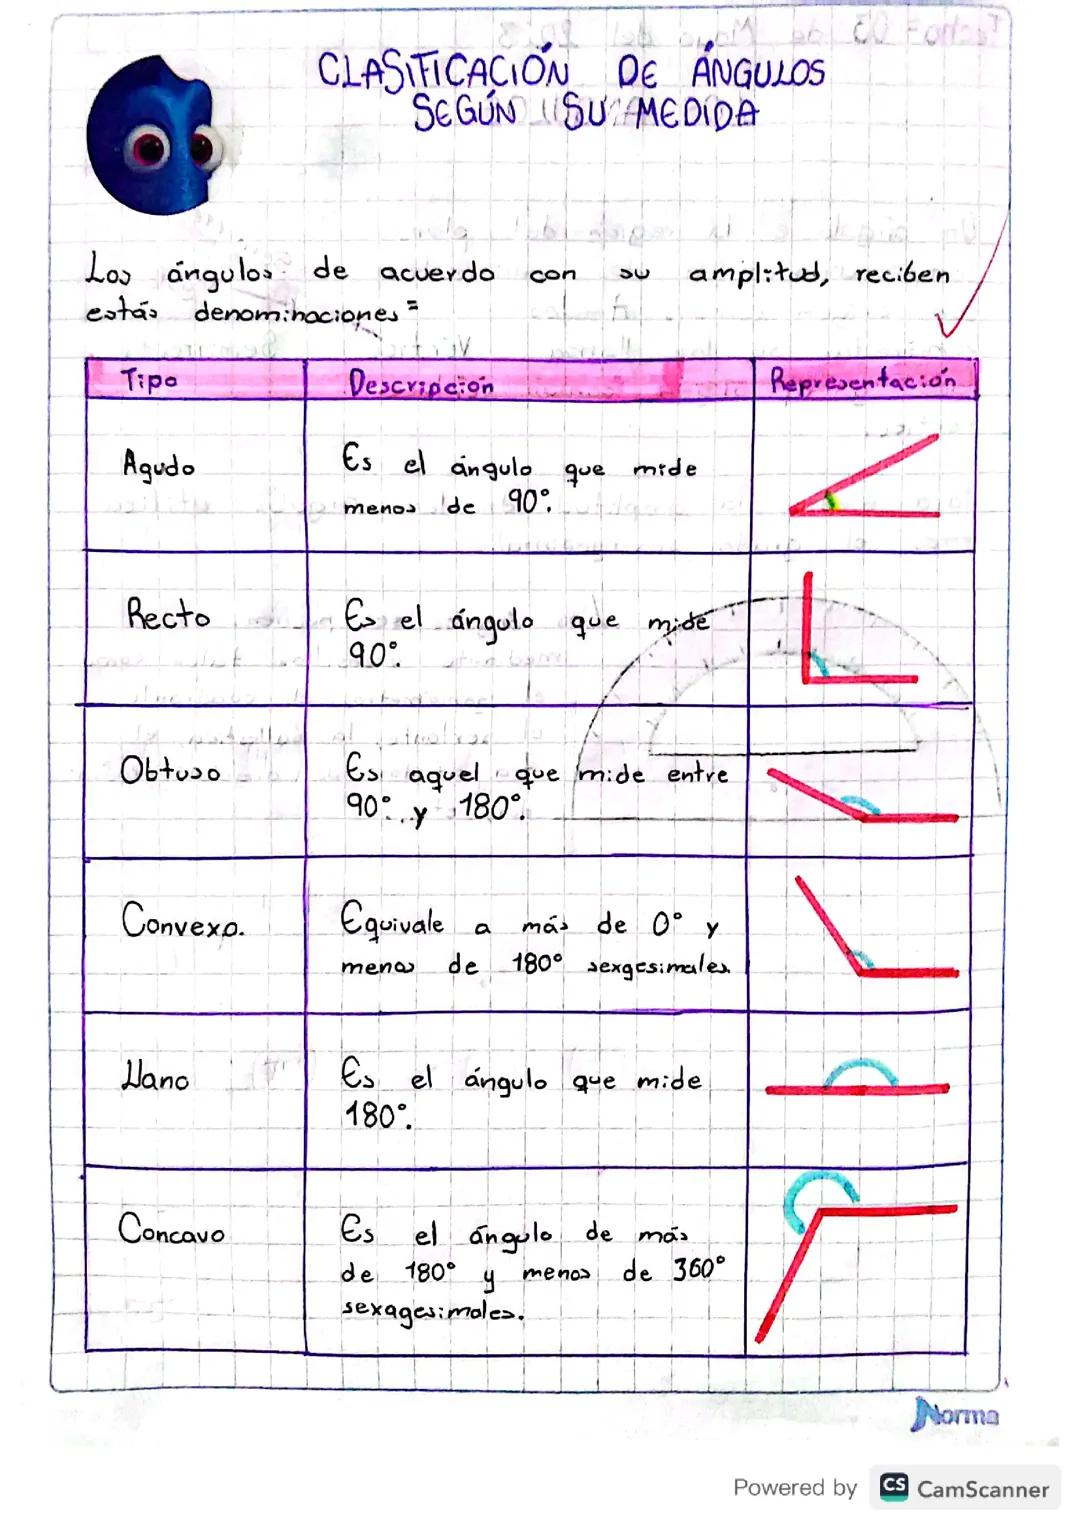 CLASIFICACIÓN DE ÁNGULOS
SEGÚN SU MEDIDA
Los ángulos de acuerdo con su amplitud, reciben
estás denominaciones =
Tipo Descripción Representación
Agudo
Es el ángulo que mide
menos de 90°.
Recto
Es el ángulo que mide
90°.
Obtuso
Es aquel que mide entre
90° y 180°.
Convexo.
Equivale a más de 0° y
menos de 180° sexgesimales.
Llano
Es el ángulo que mide
180°.
Concavo
Es el ángulo de más
de 180° y menos de 360°
sexagesimales.
Norma
Powered by CS CamScanner